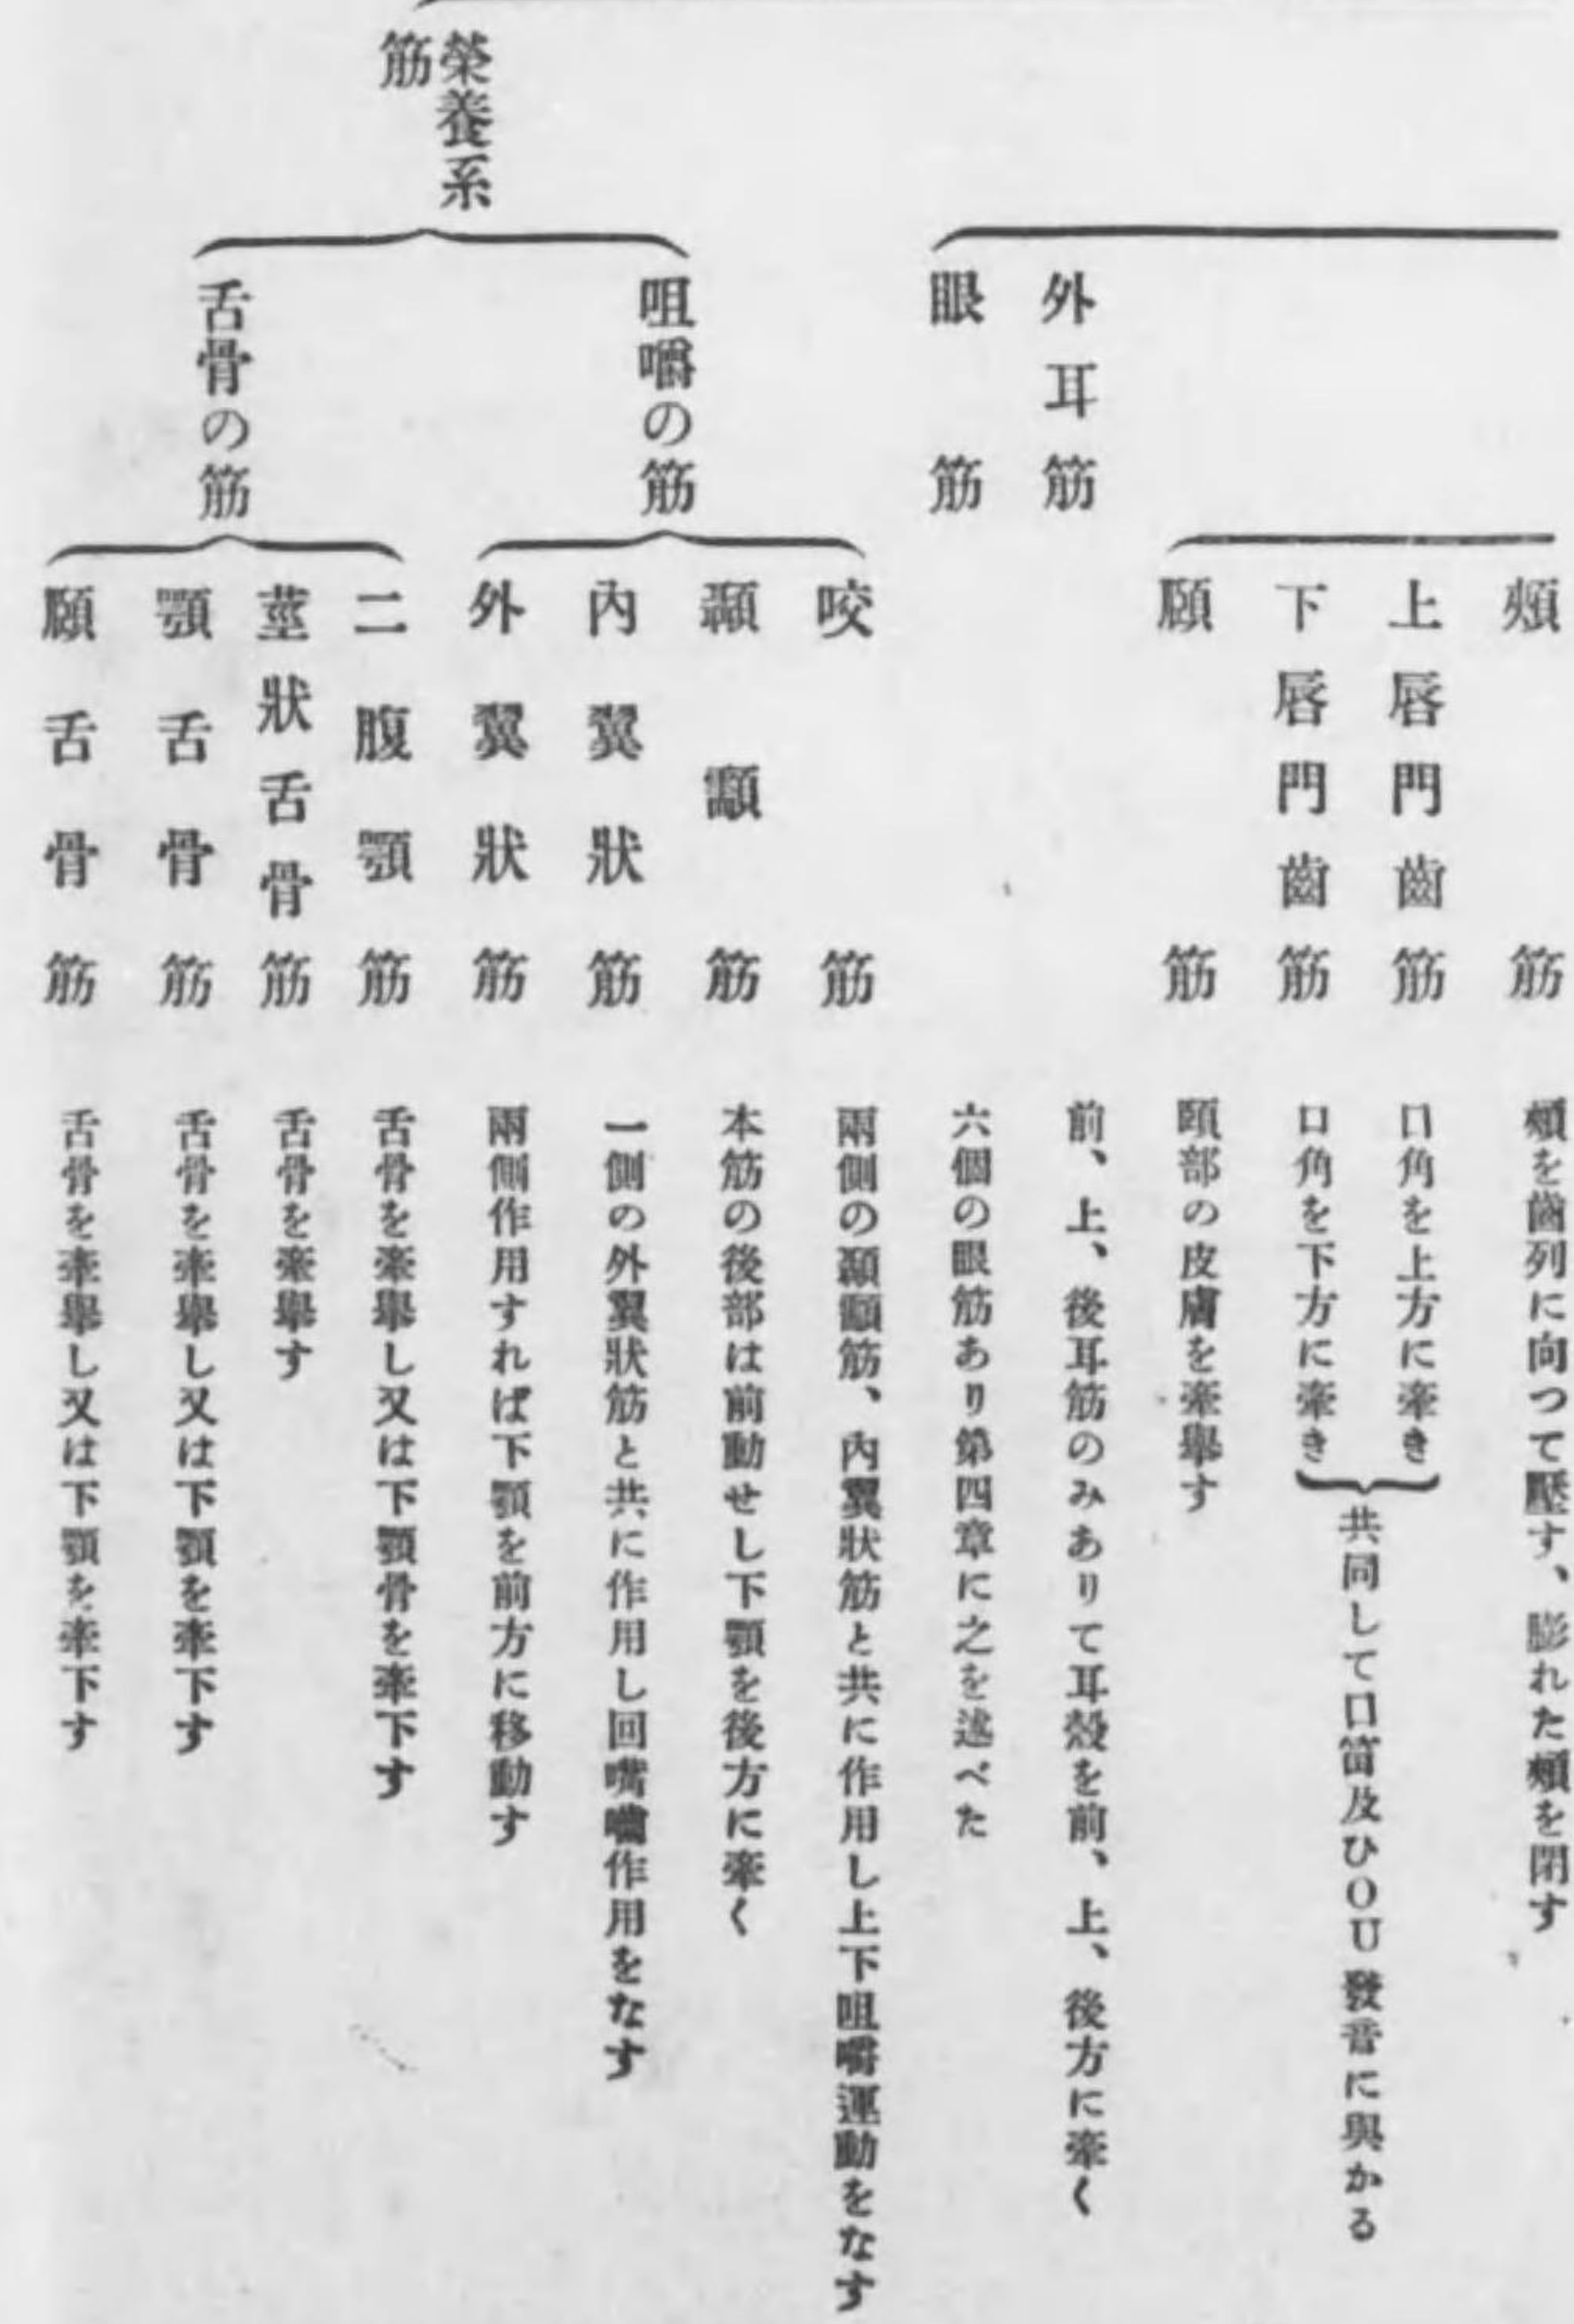 頰筋 頰を齒列に向つて壓す、膨れた頰を閉す
上唇門齒筋 口角を上方に牽き
下唇門齒筋 口角を下方に牽き
共同して口笛及ひOU發音に與かる
頤筋 頤部の皮膚を牽擧す
外耳筋 前、上、後耳筋のみありて耳殼を前、上、後方に牽く
眼筋 六個の眼筋あり第四章に之を述べた
榮養系
筋
咀嚼の筋
咬筋 兩側の顳顬筋、內翼狀筋と共に作用し上下咀嚼運動をなす
顳顬筋 本筋の後部は前動せし下顎を後方に牽く
內翼狀筋 一側の外翼狀筋と共に作用し回嘴嚼作用をなす
外翼狀筋 兩側作用すれば下顎を前方に移動す
舌骨の筋
二腹顎筋 舌骨を牽擧し又は下顎骨を牽下す
莖狀舌骨筋 舌骨を牽擧す
顎舌骨筋 舌骨を牽擧し又は下顎を牽下す
頤舌骨筋 舌骨を牽擧し又は下顎を牽下す